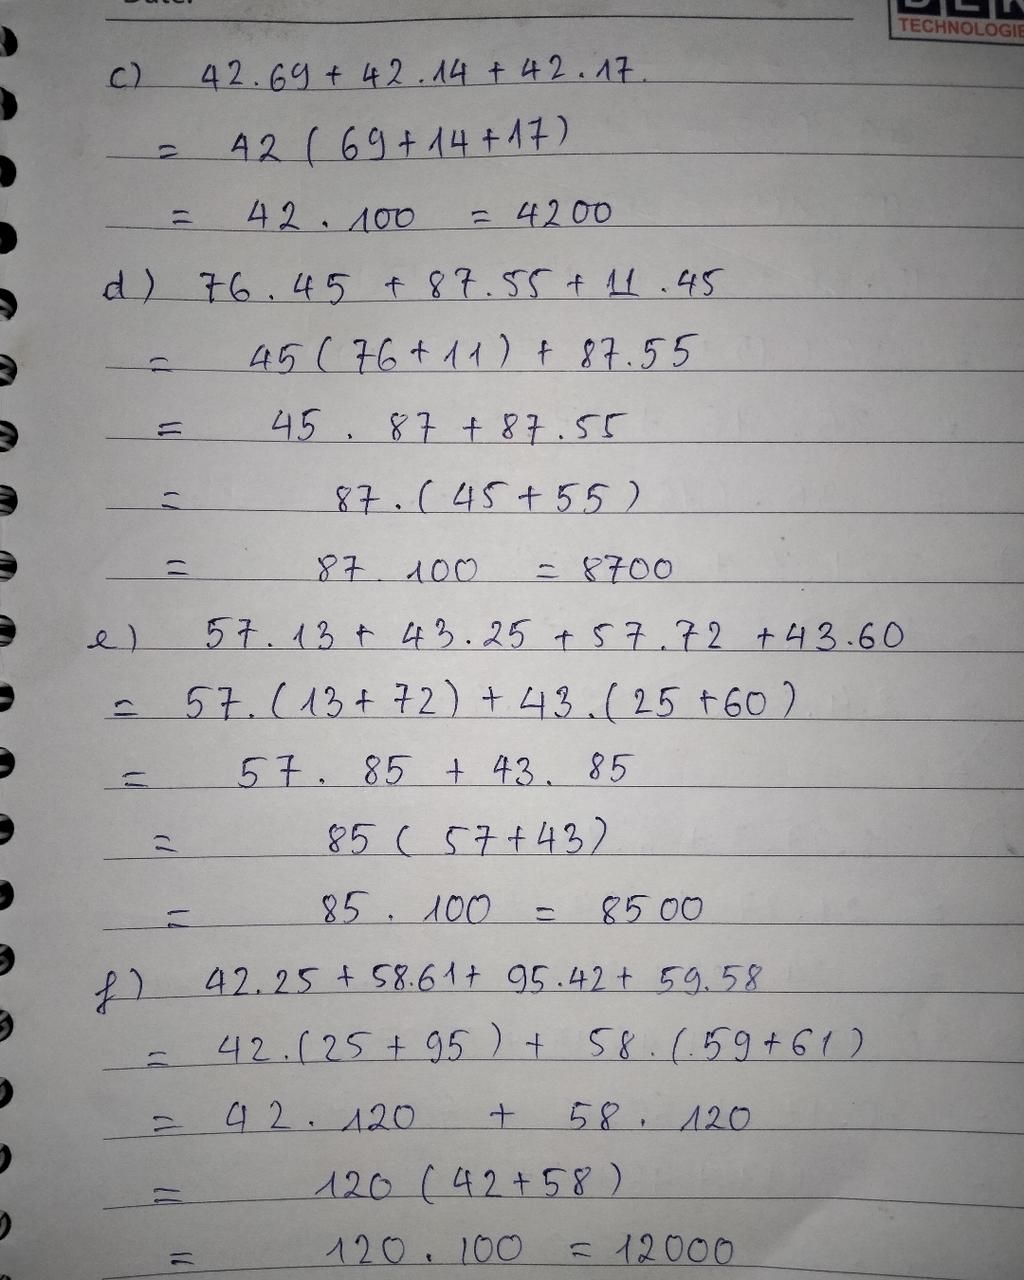 TECHNOLOGIE
c) 42.69 + 42.14 + 42.17.
= 42 ( 69 + 14 + 17 )
= 42 . 100 = 4200
d) 76 . 45 + 87.55 + 11 . 45
= 45 ( 76 + 11 ) + 87.55
= 45 . 87 + 87.55
= 87 . ( 45 + 55 )
= 87 . 100 = 8700
e) 57.13 + 43.25 + 57.72 + 43.60
= 57.( 13 + 72 ) + 43 .( 25 + 60 )
= 57 . 85 + 43 . 85
= 85 ( 57 + 43 )
= 85 . 100 = 8500
f) 42.25 + 58.61 + 95.42 + 59.58
= 42.( 25 + 95 ) + 58 . (.59 + 61 )
= 42 . 120 + 58 . 120
= 120 ( 42 + 58 )
= 120 . 100 = 12000